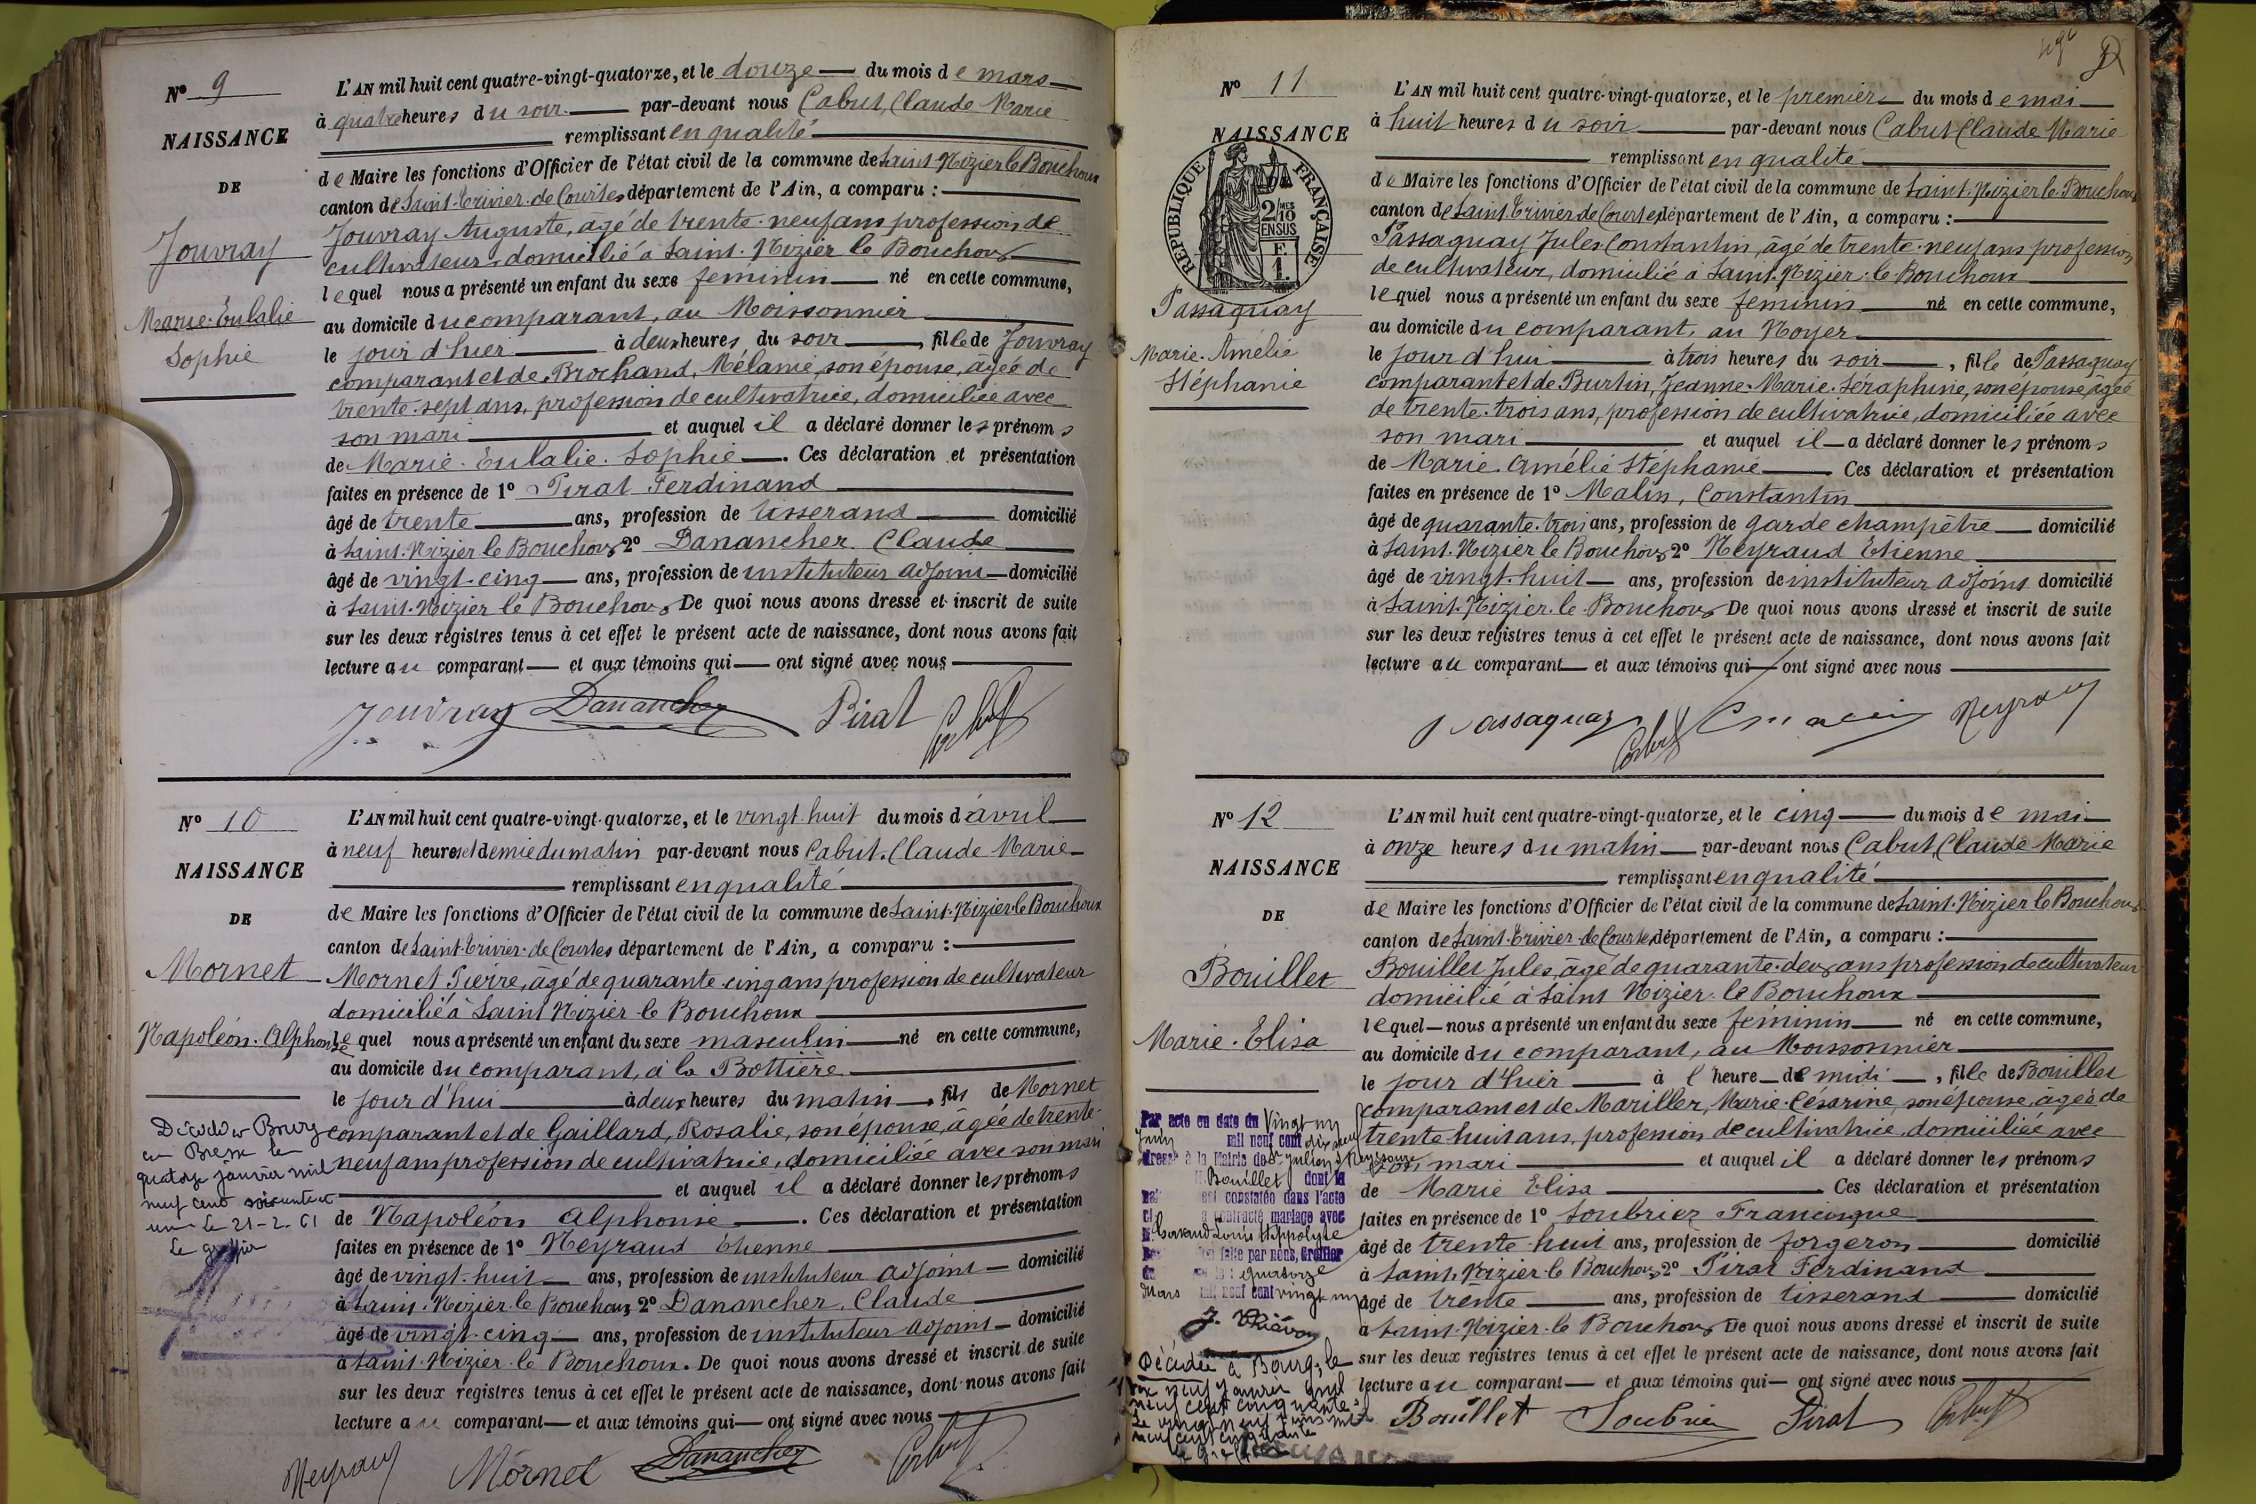 Nº 9
NAISSANCE
DE
Jouvray
Marie Eulalie
Sophie
L'AN mil huit cent quatre-vingt-quatorze, et le douze du mois de mars
à quatre heures du soir par-devant nous Cabut, Claude Marie
remplissant en qualité
de Maire les fonctions d'Officier de l'état civil de la commune de Saint-Nizier le Bouchoux
canton de Saint-Trivier-de-Courtes département de l'Ain, a comparu :
Jouvray Auguste, âgé de trente-neuf ans profession de
cultivateur, domicilié à Saint-Nizier le Bouchoux
lequel nous a présenté un enfant du sexe feminin né en cette commune,
au domicile du comparant, au Moissonnier
le jour d'hier à deux heures du soir, fille de Jouvray
comparant et de Brochand, Mélanie, son épouse, âgée de
trente-sept ans, profession de cultivatrice, domiciliée avec
son mari et auquel il a déclaré donner les prénoms
de Marie Eulalie Sophie. Ces déclaration et présentation
faites en présence de 1º Pirat Ferdinand
âgé de trente ans, profession de tisserand domicilié
à Saint-Nizier le Bouchoux 2º Danancher Claude
âgé de vingt-cinq ans, profession de instituteur adjoint domicilié
à Saint-Nizier le Bouchoux De quoi nous avons dressé et inscrit de suite
sur les deux registres tenus à cet effet le présent acte de naissance, dont nous avons fait
lecture au comparant et aux témoins qui ont signé avec nous
Jouvray Danancher Pirat Cabut
Nº 10
NAISSANCE
DE
Mornet
Napoléon-Alphonse
Décédé à Bourg
en Bresse le
quatorze janvier mil
neuf cent soixante et
un Le 21-2-61
Le greffier
L'AN mil huit cent quatre-vingt-quatorze, et le vingt-huit du mois d'avril
à neuf heures et demie du matin par-devant nous Cabut, Claude Marie
remplissant en qualité
de Maire les fonctions d'Officier de l'état civil de la commune de Saint-Nizier le Bouchoux
canton de Saint-Trivier-de-Courtes département de l'Ain, a comparu :
Mornet Pierre, âgé de quarante-cinq ans profession de cultivateur
domicilié à Saint Nizier le Bouchoux
lequel nous a présenté un enfant du sexe masculin né en cette commune,
au domicile du comparant, à la Bottière
le jour d'hui à deux heures du matin, fils de Mornet
comparant et de Gaillard, Rosalie, son épouse, âgée de trente-
neuf ans profession de cultivatrice, domiciliée avec son mari
et auquel il a déclaré donner les prénoms
de Napoléon Alphonse. Ces déclaration et présentation
faites en présence de 1º Neyraud Etienne
âgé de vingt-huit ans, profession de instituteur adjoint domicilié
à Saint-Nizier le Bouchoux 2º Danancher, Claude
âgé de vingt-cinq ans, profession de instituteur adjoint domicilié
à Saint-Nizier le Bouchoux. De quoi nous avons dressé et inscrit de suite
sur les deux registres tenus à cet effet le présent acte de naissance, dont nous avons fait
lecture au comparant et aux témoins qui ont signé avec nous
Neyraud Mornet Danancher Cabut
Nº 11
NAISSANCE
RÉPUBLIQUE FRANÇAISE
2/10 MES
EN SUS
F.
1.
Passaquay
Marie-Amélie
Stéphanie
L'AN mil huit cent quatre-vingt-quatorze, et le premier du mois de mai
à huit heures du soir par-devant nous Cabut Claude Marie
remplissant en qualité
de Maire les fonctions d'Officier de l'état civil de la commune de Saint-Nizier le Bouchoux
canton de Saint-Trivier de Courtes département de l'Ain, a comparu :
Passaquay Jules Constantin, âgé de trente-neuf ans profession
de cultivateur, domicilié à Saint-Nizier-le-Bouchoux
lequel nous a présenté un enfant du sexe feminin né en cette commune,
au domicile du comparant, au Noyer
le jour d'hui à trois heures du soir, fille de Passaquay
comparant et de Burtin, Jeanne-Marie-Séraphine, son épouse, âgée
de trente-trois ans, profession de cultivatrice, domiciliée avec
son mari et auquel il a déclaré donner les prénoms
de Marie Amélie Stéphanie Ces déclaration et présentation
faites en présence de 1º Malin, Constantin
âgé de quarante-trois ans, profession de garde champêtre domicilié
à Saint-Nizier le Bouchoux 2º Neyraud Etienne
âgé de vingt-huit ans, profession de instituteur adjoint domicilié
à Saint-Nizier-le-Bouchoux De quoi nous avons dressé et inscrit de suite
sur les deux registres tenus à cet effet le présent acte de naissance, dont nous avons fait
lecture au comparant et aux témoins qui ont signé avec nous
Passaquay Cabut C Malin Neyraud
Nº 12
NAISSANCE
DE
Bouillet
Marie-Elisa
Par acte en date du Vingt un
Juin mil neuf cent dix neuf
dressé à la Mairie de St Julien s/ Reyssouze
Bouillet dont la
est constatée dans l'acte
a contracté mariage avec
Louis Hippolyte
faite par nous, Greffier
quatorze
Mars mil neuf cent vingt un
Décédée à Bourg, le
neuf janvier mil
neuf cent cinquante
L'AN mil huit cent quatre-vingt-quatorze, et le cinq du mois de mai
à onze heures du matin par-devant nous Cabut, Claude Marie
remplissant en qualité
de Maire les fonctions d'Officier de l'état civil de la commune de Saint-Nizier le Bouchoux
canton de Saint-Trivier-de-Courtes département de l'Ain, a comparu :
Bouillet Jules, âgé de quarante-deux ans profession de cultivateur
domicilié à Saint Nizier-le Bouchoux
lequel nous a présenté un enfant du sexe féminin né en cette commune,
au domicile du comparant, au Moissonnier
le jour d'hier à l'heure de midi, fille de Bouillet
comparant et de Mariller, Marie-Césarine, son épouse, âgée de
trente huit ans, profession de cultivatrice, domiciliée avec
son mari et auquel il a déclaré donner les prénoms
de Marie Elisa Ces déclaration et présentation
faites en présence de 1º Soubriez Francisque
âgé de trente-huit ans, profession de forgeron domicilié
à Saint-Nizier-le Bouchoux 2º Pirat Ferdinand
âgé de trente ans, profession de tisserand domicilié
à Saint-Nizier-le Bouchoux De quoi nous avons dressé et inscrit de suite
sur les deux registres tenus à cet effet le présent acte de naissance, dont nous avons fait
lecture au comparant et aux témoins qui ont signé avec nous
Bouillet Pirat Cabut